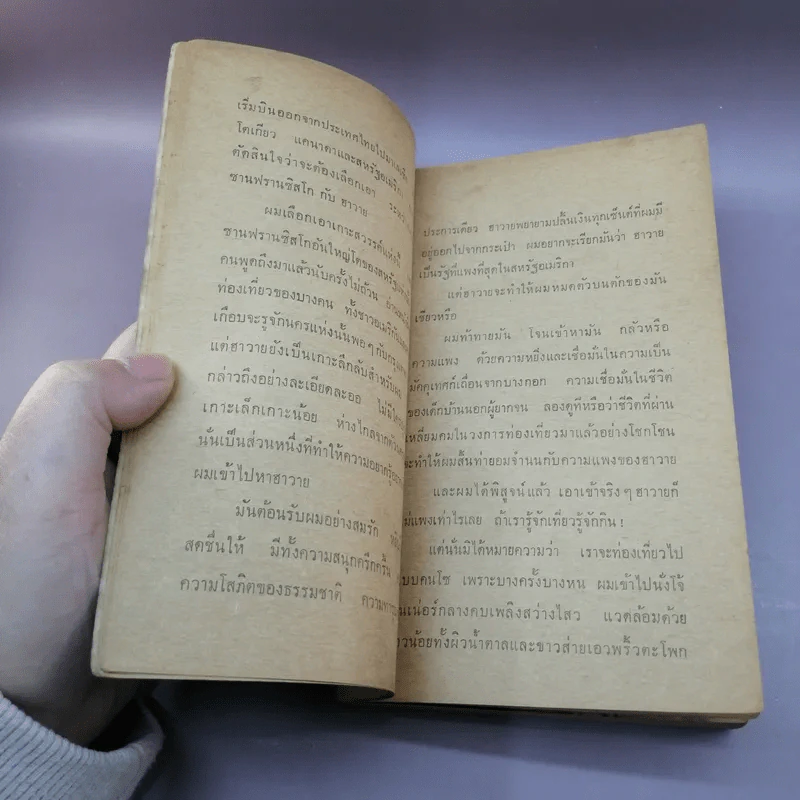 เริ่มบินออกจากประเทศไทยไปมาเลเซีย
โตเกียว แคนาดาและสหรัฐอเมริกา
ตัดสินใจว่าจะต้องเลือกเอา ระหว่าง
ซานฟรานซิสโก กับ ฮาวาย
ผมเลือกเอาเกาะสวรรค์แห่งนี้
ซานฟรานซิสโกอันใหญ่โตของสหรัฐ
คนพูดถึงมาแล้วนับครั้งไม่ถ้วน
ท่องเที่ยวของบางคน ทั้งชาวอเมริกัน
เกือบจะรู้จักนครแห่งนั้นพอๆกับกรุงเทพ
แต่ฮาวายยังเป็นเกาะลึกลับสำหรับผม
กล่าวถึงอย่างละเอียดละออ ไม่มีใคร
เกาะเล็กเกาะน้อย ห่างไกลจาก
นั่นเป็นส่วนหนึ่งที่ทำให้ความอยากรู้
ผมเข้าไปหาฮาวาย
มันต้อนรับผมอย่างสมรัก
สดชื่นให้ มีทั้งความสนุกครึกครื้น
ความโสภิตของธรรมชาติ
ประการเดียว ฮาวายพยายามปล้นเงินทุกเซ็นต์ที่ผมมี
อยู่ออกไปจากกระเป๋า ผมอยากจะเรียกมันว่า ฮาวาย
เป็นรัฐที่แพงที่สุดในสหรัฐอเมริกา
แต่ฮาวายจะทำให้ผมหมดตัวบนตักของมัน
เชียวหรือ
ผมท้าทายมัน โจนเข้าหามัน กลัวหรือ
ความแพง ด้วยความหยิ่งและเชื่อมั่นในความเป็น
มัคคุเทศก์เถื่อนจากบางกอก ความเชื่อมั่นในชีวิต
ของเด็กบ้านนอกผู้ยากจน ลองดูทีหรือว่าชีวิตที่ผ่าน
เหลี่ยมคมในวงการท่องเที่ยวมาแล้วอย่างโชกโชน
จะทำให้ผมสิ้นท่ายอมจำนนกับความแพงของฮาวาย
และผมได้พิสูจน์แล้ว เอาเข้าจริงๆฮาวายก็
ไม่แพงเท่าไรเลย ถ้าเรารู้จักเที่ยวรู้จักกิน!
แต่นั่นมิได้หมายความว่า เราจะท่องเที่ยวไป
แบบคนโซ เพราะบางครั้งบางหน ผมเข้าไปนั่งโจ้
ดินเน่อร์กลางคบเพลิงสว่างไสว แวดล้อมด้วย
สาวน้อยทั้งผิวน้ำตาลและขาวส่ายเอวพริ้วตะโพก